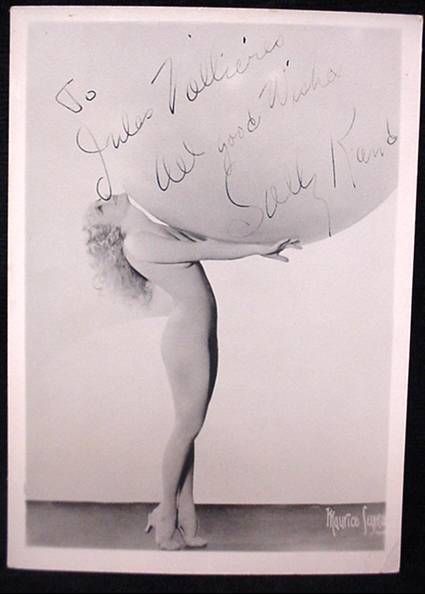 To
Jules
All good Wishes
Sally Rand
Maurice Seymour